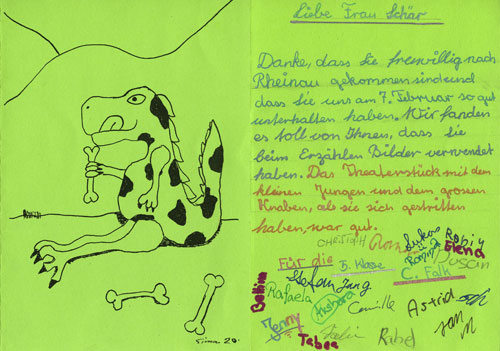 Liebe Frau Schär
Danke, dass Sie freiwillig nach
Rheinau gekommen sind und
dass Sie uns am 7. Februar so gut
unterhalten haben. Wir fanden
es toll von Ihnen, dass sie
beim Erzählen Bilder verwendet
haben. Das Theaterstück mit dem
kleinen Jungen und dem grossen
Knaben, als sie sich gestritten
haben, war gut.
CHRISTOPH Lukas Robin
Elena
FÜR die 5. Klasse Susan
C. Falk
Stefan Jung
Bettina Rafaela Barbara Camille Astrid
Jenny
Tabea Rahel Jan M